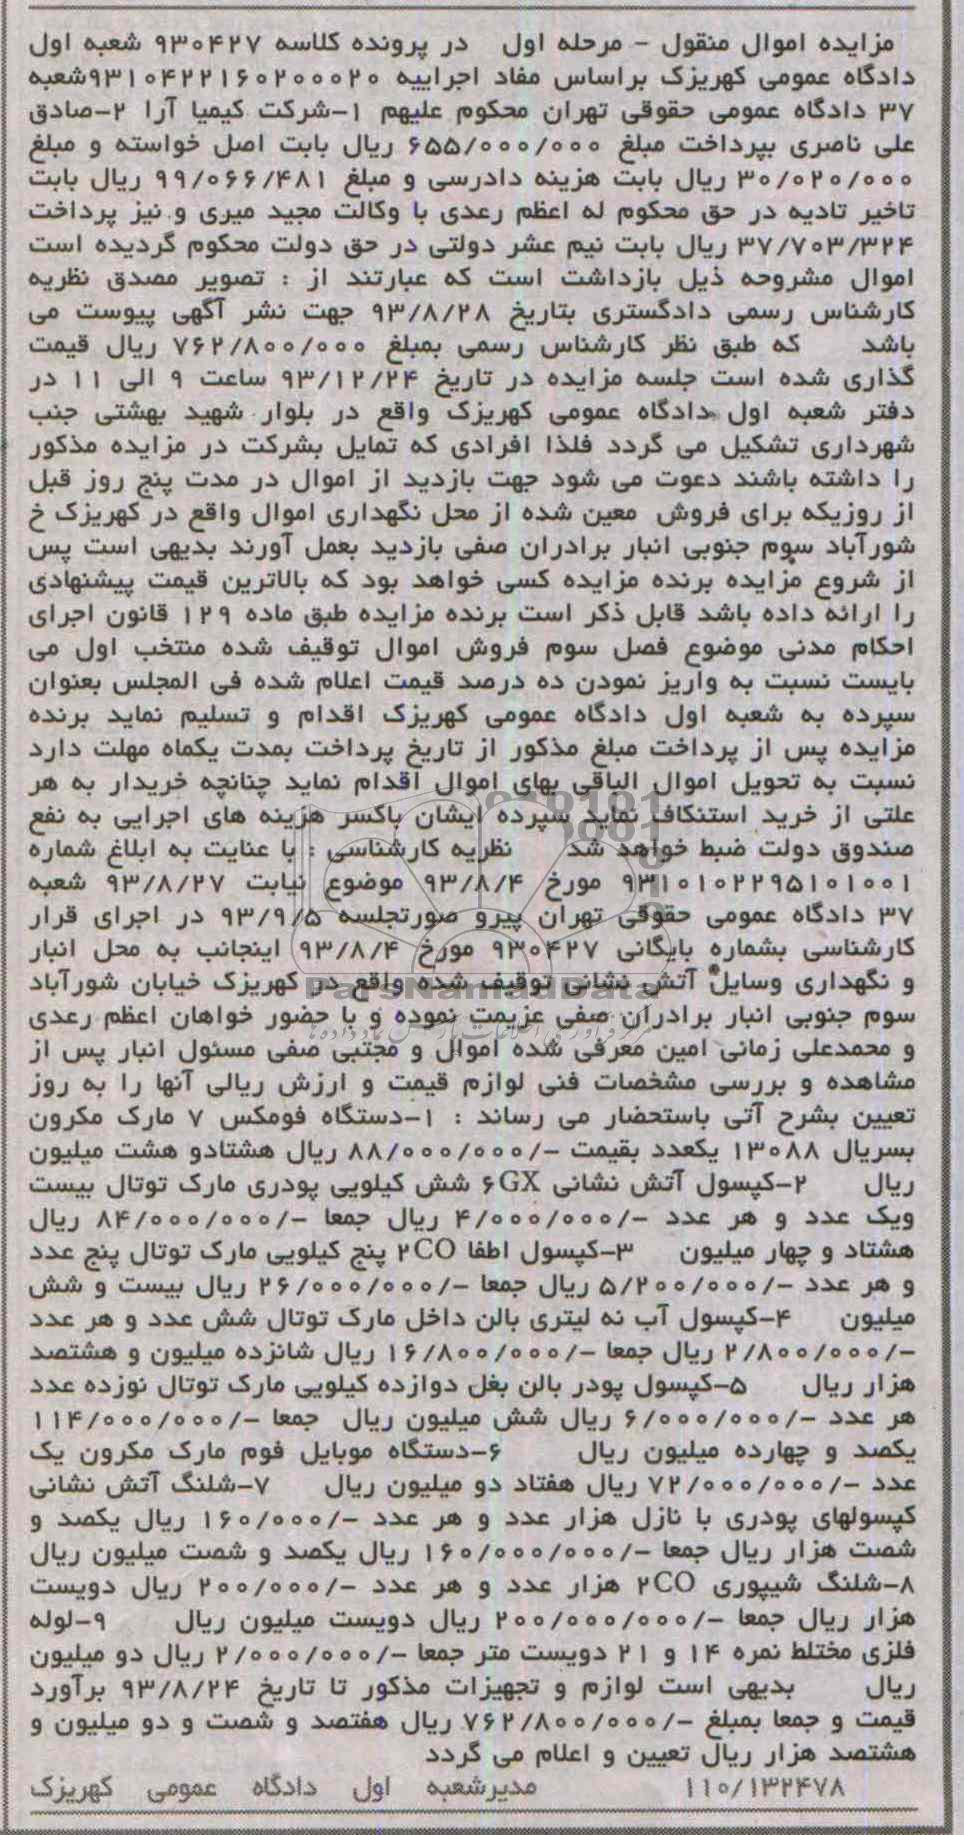 مزایده اموال منقول - مرحله اول در پرونده کلاسه ۹۳۰۴۲۷ شعبه اول
دادگاه عمومی کهریزک براساس مفاد اجراییه ۹۳۱۰۴۲۲۱۶۰۲۰۰۰۲۰شعبه
۳۷ دادگاه عمومی حقوقی تهران محکوم علیهم ۱-شرکت کیمیا آرا ۲-صادق
علی ناصری بپرداخت مبلغ ۶۵۵/۰۰۰/۰۰۰ ریال بابت اصل خواسته و مبلغ
۳۰/۰۲۰/۰۰۰ ریال بابت هزینه دادرسی و مبلغ ۹۹/۰۶۶/۴۸۱ ریال بابت
تاخیر تادیه در حق محکوم له اعظم رعدی با وکالت مجید میری و نیز پرداخت
۳۷/۷۰۳/۳۲۴ ریال بابت نیم عشر دولتی در حق دولت محکوم گردیده است
اموال مشروحه ذیل بازداشت است که عبارتند از : تصویر مصدق نظریه
کارشناس رسمی دادگستری بتاریخ ۹۳/۸/۲۸ جهت نشر آگهی پیوست می
باشد که طبق نظر کارشناس رسمی بمبلغ ۷۶۲/۸۰۰/۰۰۰ ریال قیمت
گذاری شده است جلسه مزایده در تاریخ ۹۳/۱۲/۲۴ ساعت ۹ الی ۱۱ در
دفتر شعبه اول دادگاه عمومی کهریزک واقع در بلوار شهید بهشتی جنب
شهرداری تشکیل می گردد فلذا افرادی که تمایل بشرکت در مزایده مذکور
را داشته باشند دعوت می شود جهت بازدید از اموال در مدت پنج روز قبل
از روزیکه برای فروش معین شده از محل نگهداری اموال واقع در کهریزک خ
شورآباد سوم جنوبی انبار برادران صفی بازدید بعمل آورند بدیهی است پس
از شروع مزایده برنده مزایده کسی خواهد بود که بالاترین قیمت پیشنهادی
را ارائه داده باشد قابل ذکر است برنده مزایده طبق ماده ۱۲۹ قانون اجرای
احکام مدنی موضوع فصل سوم فروش اموال توقیف شده منتخب اول می
بایست نسبت به واریز نمودن ده درصد قیمت اعلام شده فی المجلس بعنوان
سپرده به شعبه اول دادگاه عمومی کهریزک اقدام و تسلیم نماید برنده
مزایده پس از پرداخت مبلغ مذکور از تاریخ پرداخت بمدت یکماه مهلت دارد
نسبت به تحویل اموال الباقی بهای اموال اقدام نماید چنانچه خریدار به هر
علتی از خرید استنکاف نماید سپرده ایشان باکسر هزینه های اجرایی به نفع
صندوق دولت ضبط خواهد شد نظریه کارشناسی : با عنایت به ابلاغ شماره
۹۳۱۰۱۰۲۲۹۵۱۰۱۰۰۱ مورخ ۹۳/۸/۴ موضوع نیابت ۹۳/۸/۲۷ شعبه
۳۷ دادگاه عمومی حقوقی تهران پیرو صورتجلسه ۹۳/۹/۵ در اجرای قرار
کارشناسی بشماره بایگانی ۹۳۰۴۲۷ مورخ ۹۳/۸/۴ اینجانب به محل انبار
و نگهداری وسایل آتش نشانی توقیف شده واقع در کهریزک خیابان شورآباد
سوم جنوبی انبار برادران صفی عزیمت نموده و با حضور خواهان اعظم رعدی
و محمدعلی زمانی امین معرفی شده اموال و مجتبی صفی مسئول انبار پس از
مشاهده و بررسی مشخصات فنی لوازم قیمت و ارزش ریالی آنها را به روز
تعیین بشرح آتی باستحضار می رساند : ۱-دستگاه فومکس ۷ مارک مکرون
بسریال ۱۳۰۸۸ یکعدد بقیمت -/۸۸/۰۰۰/۰۰۰ ریال هشتادو هشت میلیون
ریال ۲-کپسول آتش نشانی ۶GX شش کیلویی پودری مارک توتال بیست
ویک عدد و هر عدد -/۴/۰۰۰/۰۰۰ ریال جمعا -/۸۴/۰۰۰/۰۰۰ ریال
هشتاد و چهار میلیون ۳-کپسول اطفا ۲CO پنج کیلویی مارک توتال پنج عدد
و هر عدد -/۵/۲۰۰/۰۰۰ ریال جمعا -/۲۶/۰۰۰/۰۰۰ ریال بیست و شش
میلیون ۴-کپسول آب نه لیتری بالن داخل مارک توتال شش عدد و هر عدد
-/۲/۸۰۰/۰۰۰ ریال جمعا -/۱۶/۸۰۰/۰۰۰ ریال شانزده میلیون و هشتصد
هزار ریال ۵-کپسول پودر بالن بغل دوازده کیلویی مارک توتال نوزده عدد
هر عدد -/۶/۰۰۰/۰۰۰ ریال شش میلیون ریال جمعا -/۱۱۴/۰۰۰/۰۰۰
یکصد و چهارده میلیون ریال ۶-دستگاه موبایل فوم مارک مکرون یک
عدد -/۷۲/۰۰۰/۰۰۰ ریال هفتاد دو میلیون ریال ۷-شلنگ آتش نشانی
کپسولهای پودری با نازل هزار عدد و هر عدد -/۱۶۰/۰۰۰ ریال یکصد و
شصت هزار ریال جمعا -/۱۶۰/۰۰۰/۰۰۰ ریال یکصد و شصت میلیون ریال
۸-شلنگ شیپوری ۲CO هزار عدد و هر عدد -/۲۰۰/۰۰۰ ریال دویست
هزار ریال جمعا -/۲۰۰/۰۰۰/۰۰۰ ریال دویست میلیون ریال ۹-لوله
فلزی مختلط نمره ۱۴ و ۲۱ دویست متر جمعا -/۲/۰۰۰/۰۰۰ ریال دو میلیون
ریال بدیهی است لوازم و تجهیزات مذکور تا تاریخ ۹۳/۸/۲۴ برآورد
قیمت و جمعا بمبلغ -/۷۶۲/۸۰۰/۰۰۰ ریال هفتصد و شصت و دو میلیون و
هشتصد هزار ریال تعیین و اعلام می گردد
۱۱۰/۱۳۲۴۷۸ مدیرشعبه اول دادگاه عمومی کهریزک
ParsNamadData